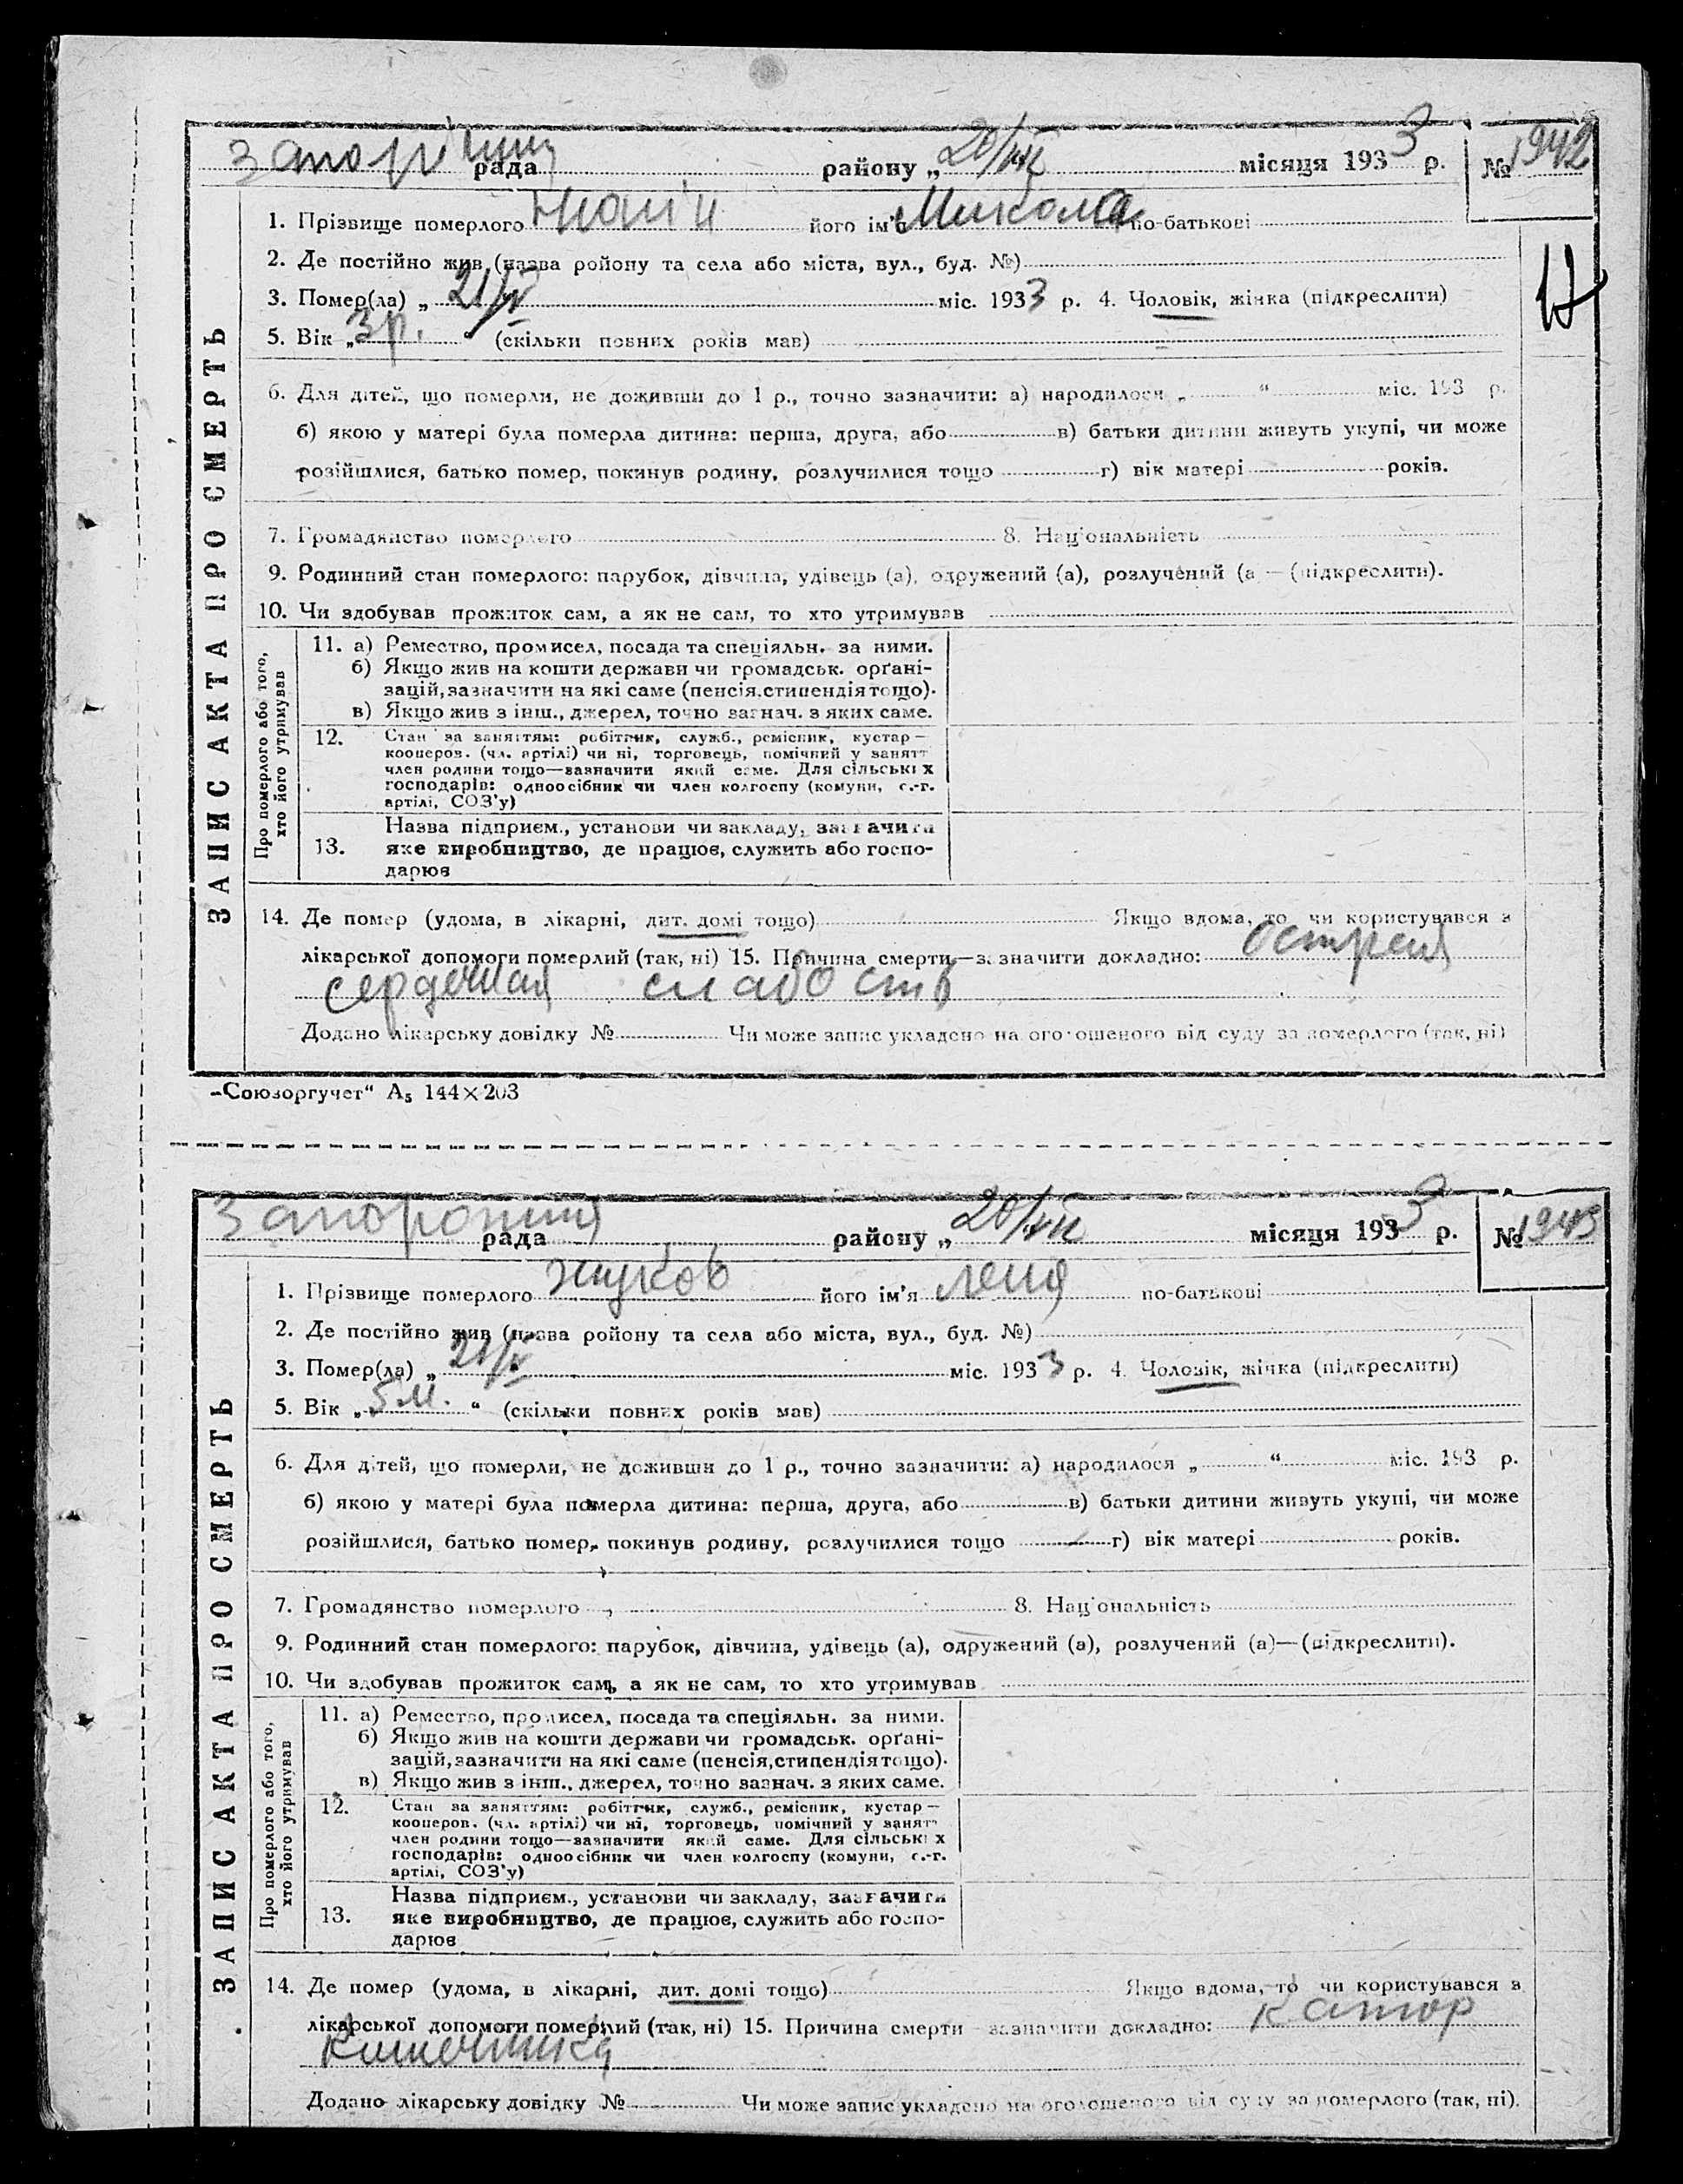 рада району „20/VIII місяця 1933 р. № 1942
1. Прізвище померлого його ім'я Микола по-батькові
2. Де постійно жив (назва ройону та села або міста, вул., буд. №)
3. Помер(ла) „ 21/V міс. 1933 р. 4. Чоловік, жінка (підкреслити)
17
5. Вік „ 3 р. “ (скільки повних років мав)
6. Для дітей, що померли, не доживши до 1 р., точно зазначити: а) народилося „ “ міс. 193 р.
б) якою у матері була померла дитина: перша, друга, або в) батьки дитини живуть укупі, чи може
розійшлися, батько помер, покинув родину, розлучилися тощо г) вік матері років.
7. Громадянство померлого 8. Національність
9. Родинний стан померлого: парубок, дівчина, удівець (а), одружений (а), розлучений (а — (підкреслити).
10. Чи здобував прожиток сам, а як не сам, то хто утримував
Про померлого або того, хто його утримував
11. а) Ремество, промисел, посада та спеціяльн. за ними.
б) Якщо жив на кошти держави чи громадськ. орґані-
зацій, зазначити на які саме (пенсія, стипендія тощо).
в) Якщо жив з інш., джерел, точно зазнач. з яких саме.
12. Стан за заняттям: робітник, служб., ремісник, кустар—
кооперов. (чл. артілі) чи ні, торговець, помічний у занятт
член родини тощо—зазначити який саме. Для сільських
господарів: одноосібник чи член колгоспу (комуни, с.-г.
артілі, СОЗ'у)
13. Назва підприєм., установи чи закладу, зазначити
яке виробництво, де працює, служить або госпо-
дарює
14. Де помер (удома, в лікарні, дит. домі тощо) Якщо вдома, то чи користувався з
лікарської допомоги померлий (так, ні) 15. Причина смерти—зазначити докладно: острая
сердечная слабость
Додано лікарську довідку № Чи може запис укладено на оголошеного від суду за померлого (так, ні)
ЗАПИС АКТА ПРО СМЕРТЬ
„Союзоргучет“ А5 144×203
рада району „20/VIII місяця 1933 р. № 1943
1. Прізвище померлого Жуков його ім'я Леня по-батькові
2. Де постійно жив (назва ройону та села або міста, вул., буд. №)
3. Помер(ла) „ 21/V міс. 1933 р. 4. Чоловік, жінка (підкреслити)
5. Вік „ 5 м. “ (скільки повних років мав)
6. Для дітей, що померли, не доживши до 1 р., точно зазначити: а) народилося „ “ міс. 193 р.
б) якою у матері була померла дитина: перша, друга, або в) батьки дитини живуть укупі, чи може
розійшлися, батько помер, покинув родину, розлучилися тощо г) вік матері років.
7. Громадянство померлого 8. Національність
9. Родинний стан померлого: парубок, дівчина, удівець (а), одружений (а), розлучений (а)—(підкреслити).
10. Чи здобував прожиток сам, а як не сам, то хто утримував
Про померлого або того, хто його утримував
11. а) Ремество, промисел, посада та спеціяльн. за ними.
б) Якщо жив на кошти держави чи громадськ. орґані-
зацій, зазначити на які саме (пенсія, стипендія тощо).
в) Якщо жив з інш., джерел, точно зазнач. з яких саме.
12. Стан за заняттям: робітник, служб., ремісник, кустар—
кооперов. (чл. артілі) чи ні, торговець, помічний у занятт
член родини тощо—зазначити який саме. Для сільських
господарів: одноосібник чи член колгоспу (комуни, с.-г.
артілі, СОЗ'у)
13. Назва підприєм., установи чи закладу, зазначити
яке виробництво, де працює, служить або госпо-
дарює
14. Де помер (удома, в лікарні, дит. домі тощо) Якщо вдома, то чи користувався з
лікарської допомоги померлий (так, ні) 15. Причина смерти зазначити докладно: катар
кишечника
Додано лікарську довідку № Чи може запис укладено на оголошеного від суду за померлого (так, ні).
ЗАПИС АКТА ПРО СМЕРТЬ